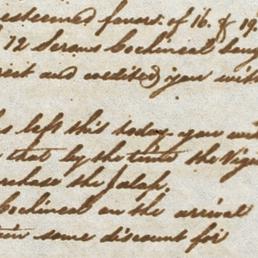 esteemed favors of 16. & 19.
12 Serons Cochineal boug
rect and credited you with
left this today. you wi
that by the time the Vigi
urchase the Jalap,
Cochineal on the arrival
some discount for